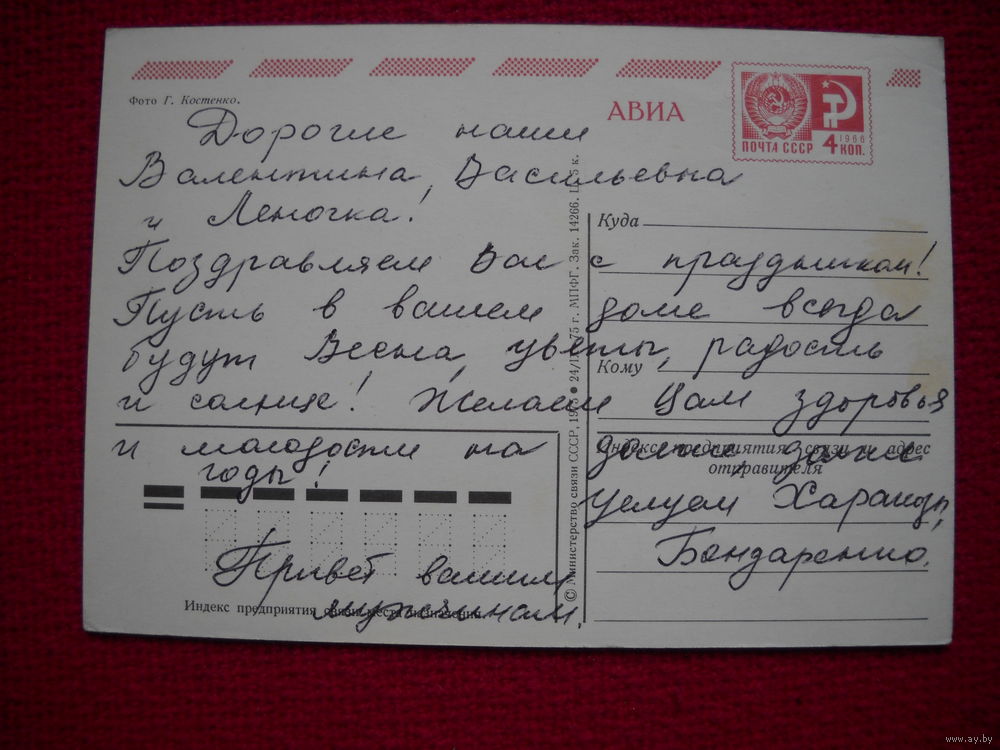 Фото Г. Костенко.
АВИА
ПОЧТА СССР 4 КОП.
1966
Дорогие наши
Валентина Васильевна
и Леночка!
Поздравляем Вас с праздником!
Пусть в вашем доме всегда
будут Весна, цветы, радость
и солнце! Желаем Вам здоровья
и молодости на долгие, долгие
годы!
целуем
Бондаренко.
Привет вашим
мужчинам.
Куда
Кому
Индекс предприятия связи и адрес
отправителя
Индекс предприятия связи места назначения
© Министерство связи СССР, 1975 • 24/ 75 г. МПФГ. Зак. 14266. Ц. 5 к.
www.ay.by